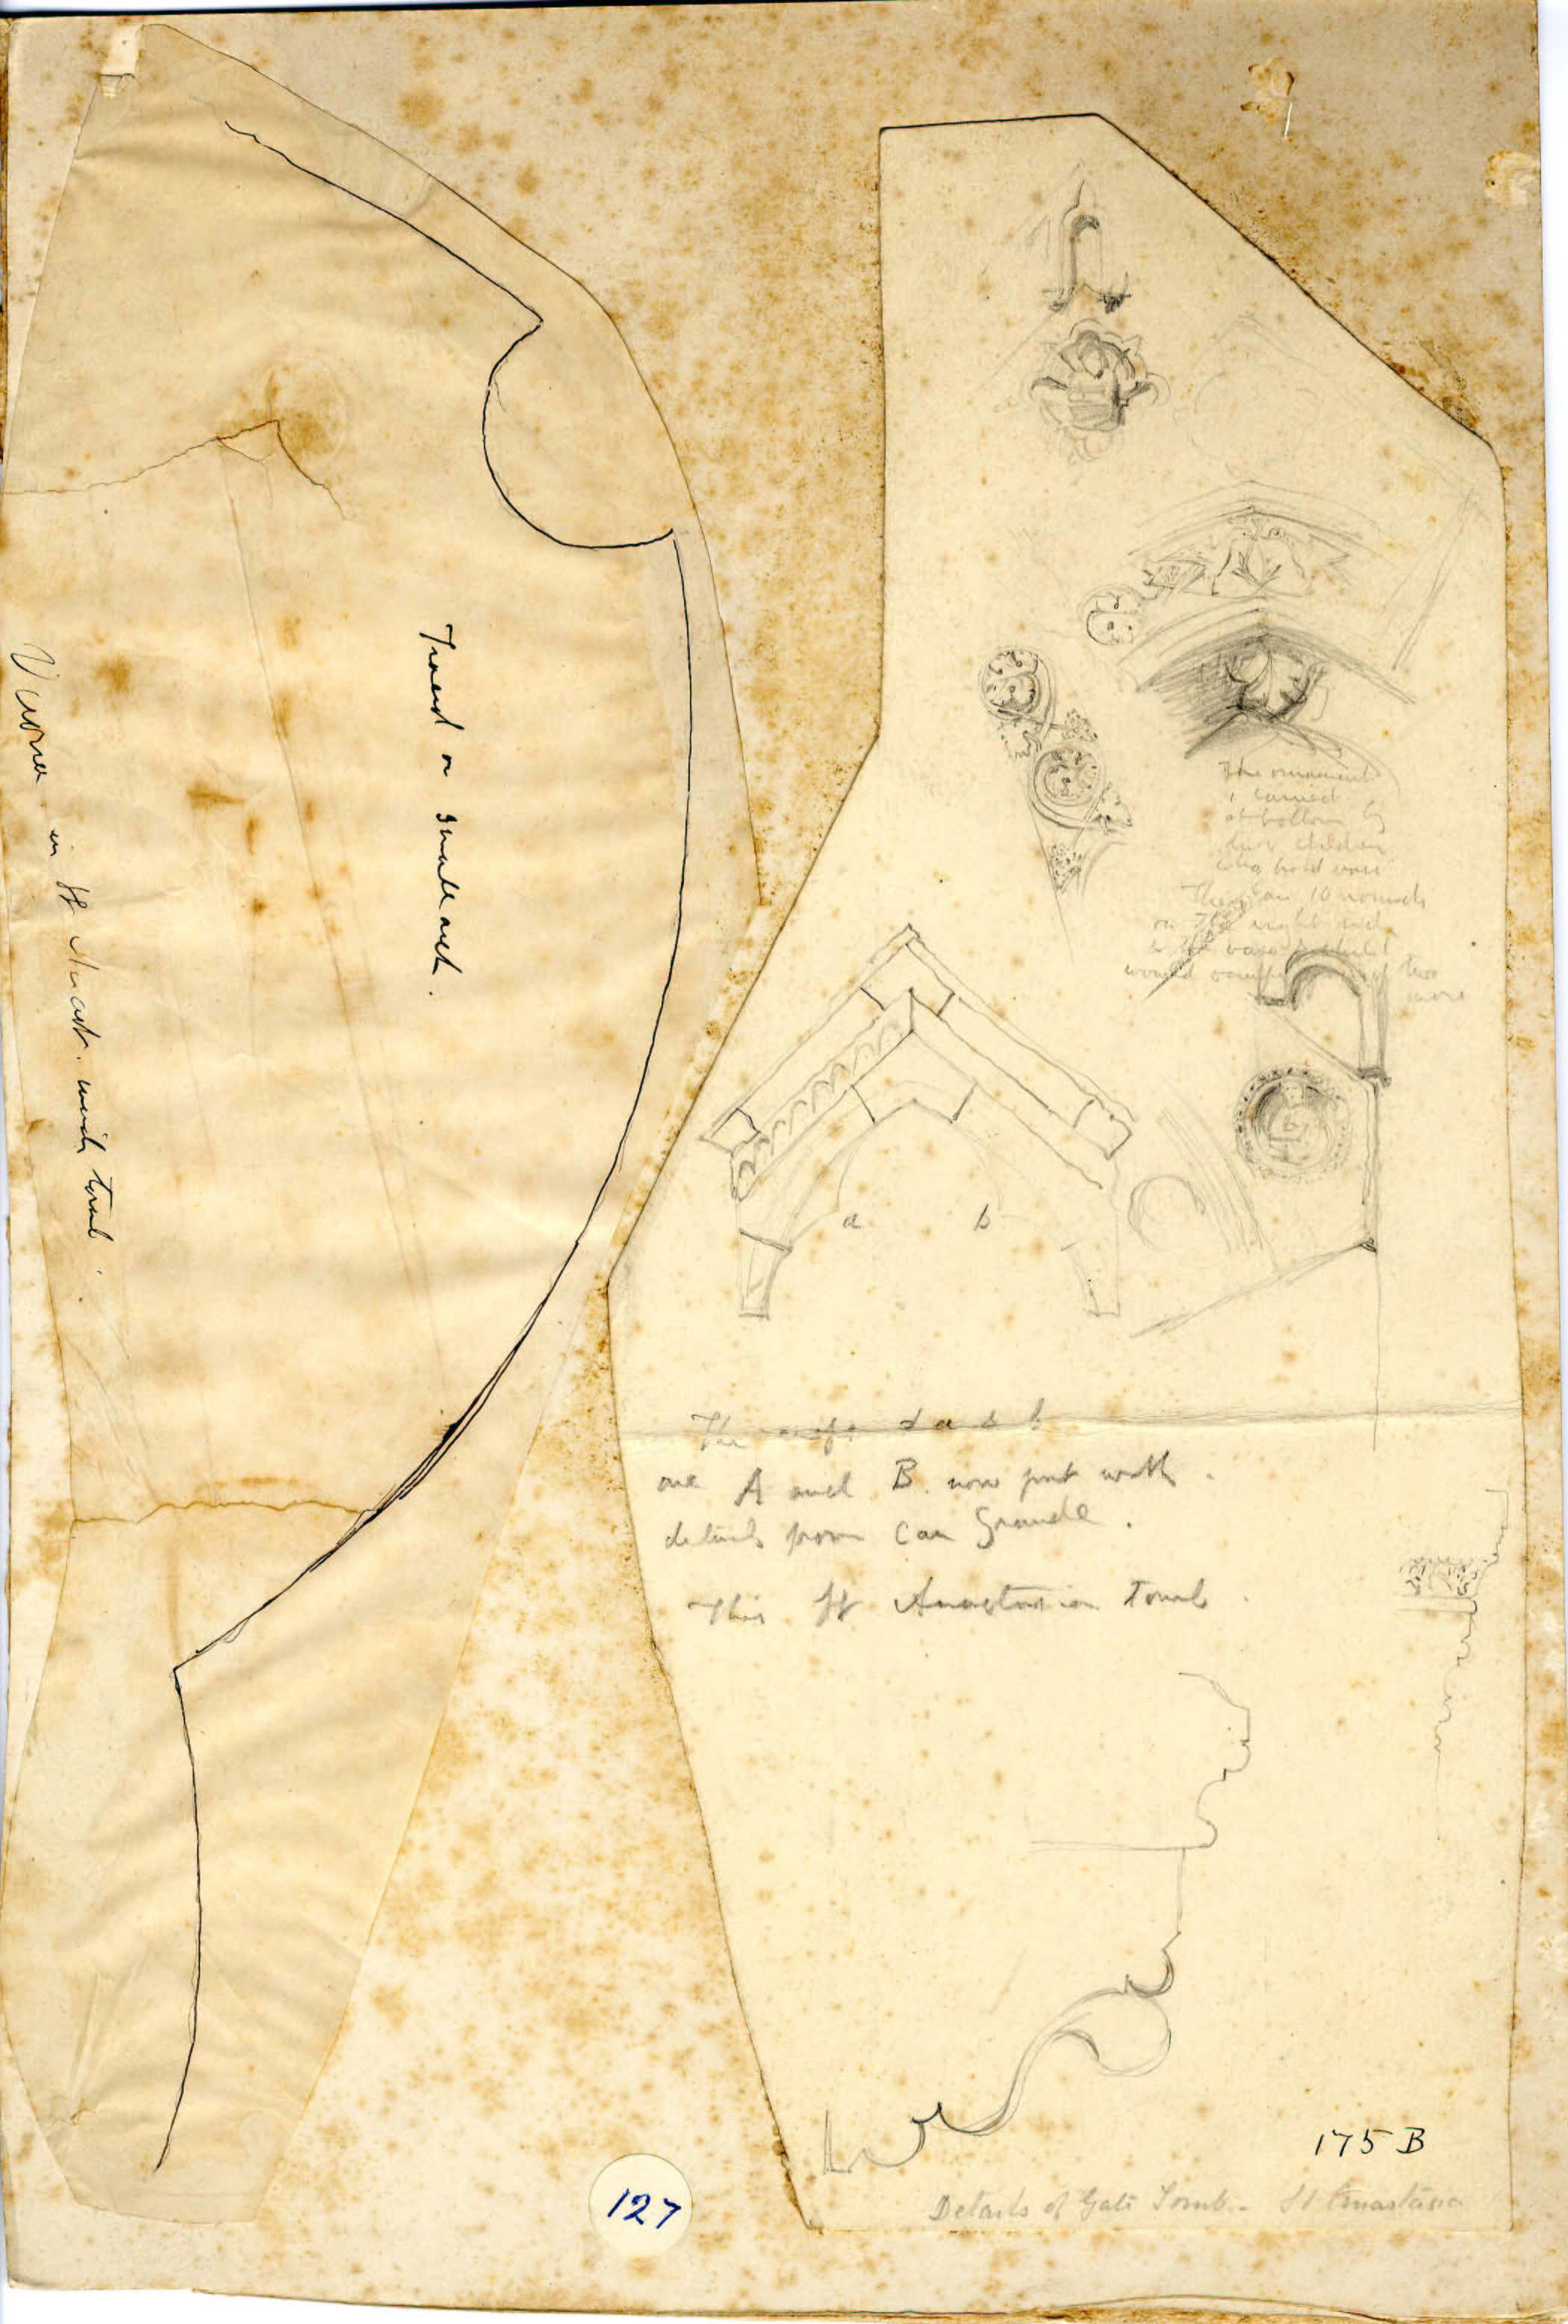 Traced on small arch.
Verona in St Anast. with tomb.
The ornament
is carried
at bottom by
two children
who hold vase
There are 10 rounds
on the right side
& the vase
would two
more
a b
The a & b
are A and B. now put with
details from Can Grande.
This St Anastasia Tomb.
175 B
Details of Gate Tomb - St Anastasia
127